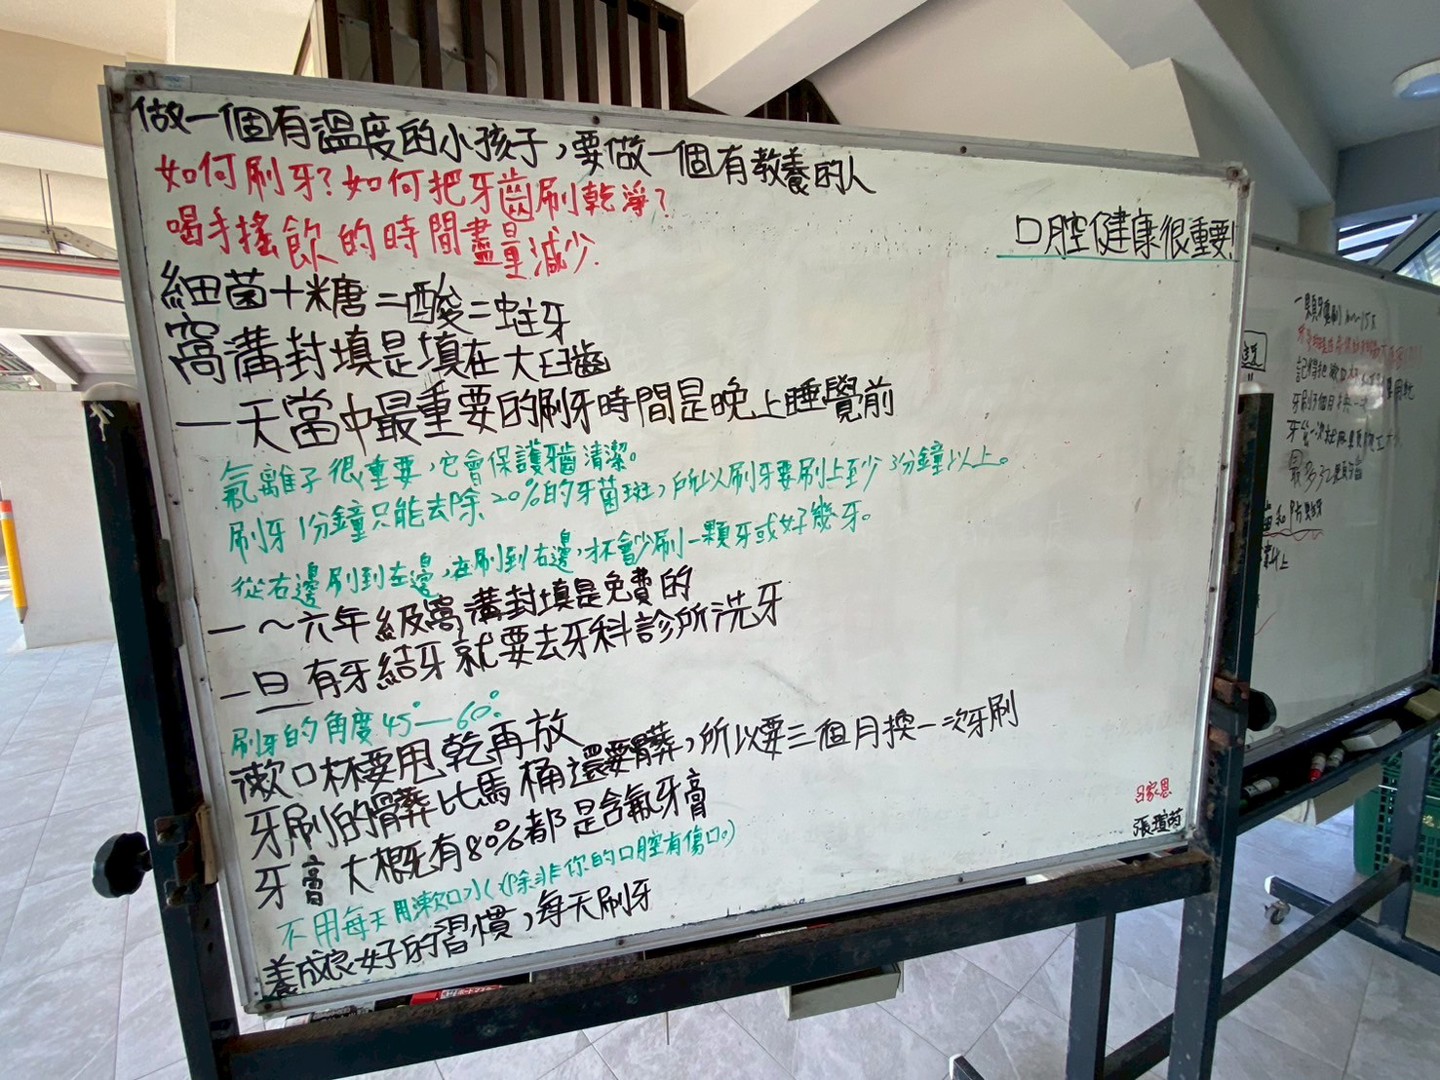 做一個有溫度的小孩子，要做一個有教養的人
如何刷牙？如何把牙齒刷乾淨？
喝手搖飲的時間盡量減少.
口腔健康很重要!
細菌＋糖＝酸＝蛀牙
窩溝封填是填在大臼齒
一天當中最重要的刷牙時間是晚上睡覺前
氟離子很重要，它會保護牙齒清潔。
刷牙1分鐘只能去除20%的牙菌斑，所以刷牙要刷上至少3分鐘以上。
從右邊刷到左邊，在刷到右邊，才不會少刷一顆牙或好幾牙。
一～六年級窩溝封填是免費的
一旦有牙結牙就要去牙科診所洗牙
刷牙的角度45°—60°.
漱口杯要甩乾再放
牙刷的髒比馬桶還要髒，所以要三個月換一次牙刷
牙膏大概有80%都是含氟牙膏
不用每天用漱口水(除非你的口腔有傷口。)
養成良好的習慣，每天刷牙
呂家恩
張瑄芮